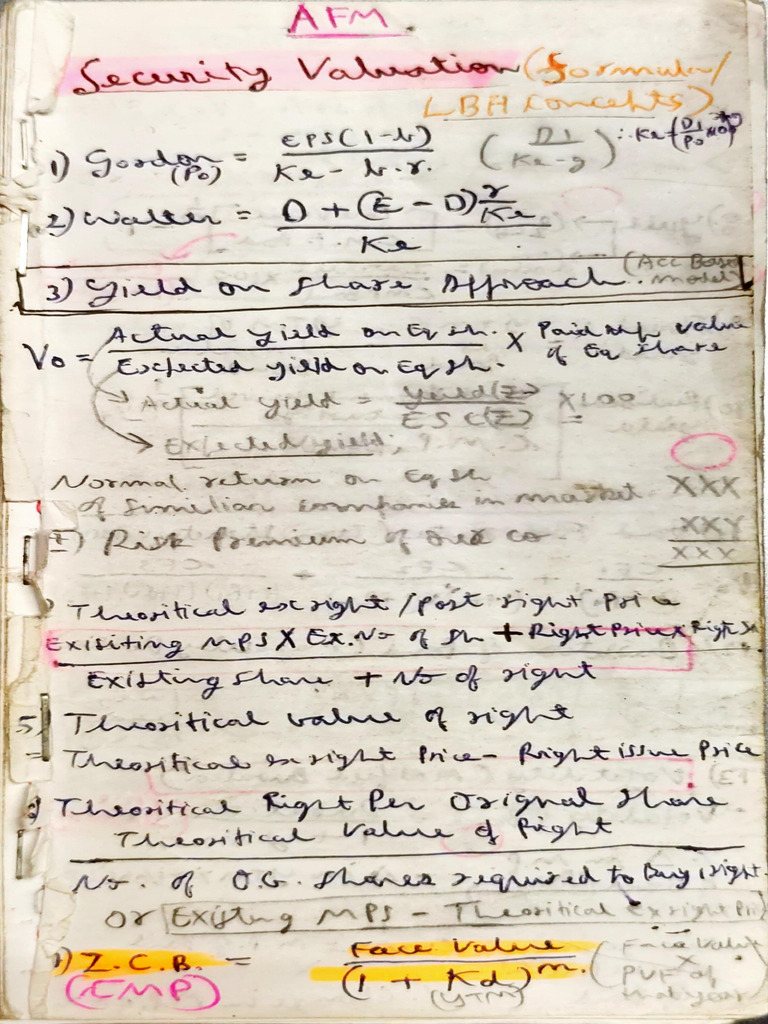 AFM
Security Valuation (formula/
LBH concepts)
1) Gordon = EPS(1-b) / Ke - b.r. (D1 / Ke-g) ∴ Ke = (D1/P0
(P0)
2) Walter = D + (E - D) r/Ke / Ke
3) Yield on share Approach. (Acc Base model)
V0 = Actual yield on Eq sh. / Expected yield on Eq sh. X Paid up value of Eq share
→ Actual yield = yield(Σ) / ESC(Σ) X100 =
→ Expected yield;
Normal return on Eq sh
of similiar companies in market XXX
Risk Premium of our co. XXX
XXX
Theoritical ex right / post right Price
Exisiting MPS X Ex. No of sh + Right Price x Right
Existing share + No of right
5) Theoritical value of right
= Theoritical ex right Price - Right issue Price
Theoritical Right Per Original share
Theoritical Value of Right
No. of O.G. shares required to Buy 1 right
Or Existing MPS - Theoritical ex right Pri
Z.C.B. = Face Value / (1 + Kd)^n. (Face Value
(CMP) (YTM) X
PVF of